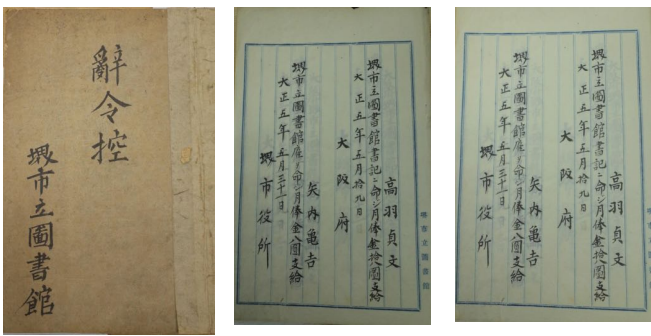 辭令控
堺市立圖書館
高羽貞文
堺市立圖書館書記ニ命シ月俸金拾圓支給
大正五年五月拾九日
大阪府
矢内亀吉
堺市立圖書館雇ヲ命シ月俸金八圓支給
大正五年五月三十一日
堺市役所
堺市立圖書館
高羽貞文
堺市立圖書館書記ニ命シ月俸金拾圓支給
大正五年五月拾九日
大阪府
矢内亀吉
堺市立圖書館雇ヲ命シ月俸金八圓支給
大正五年五月三十一日
堺市役所
堺市立圖書館